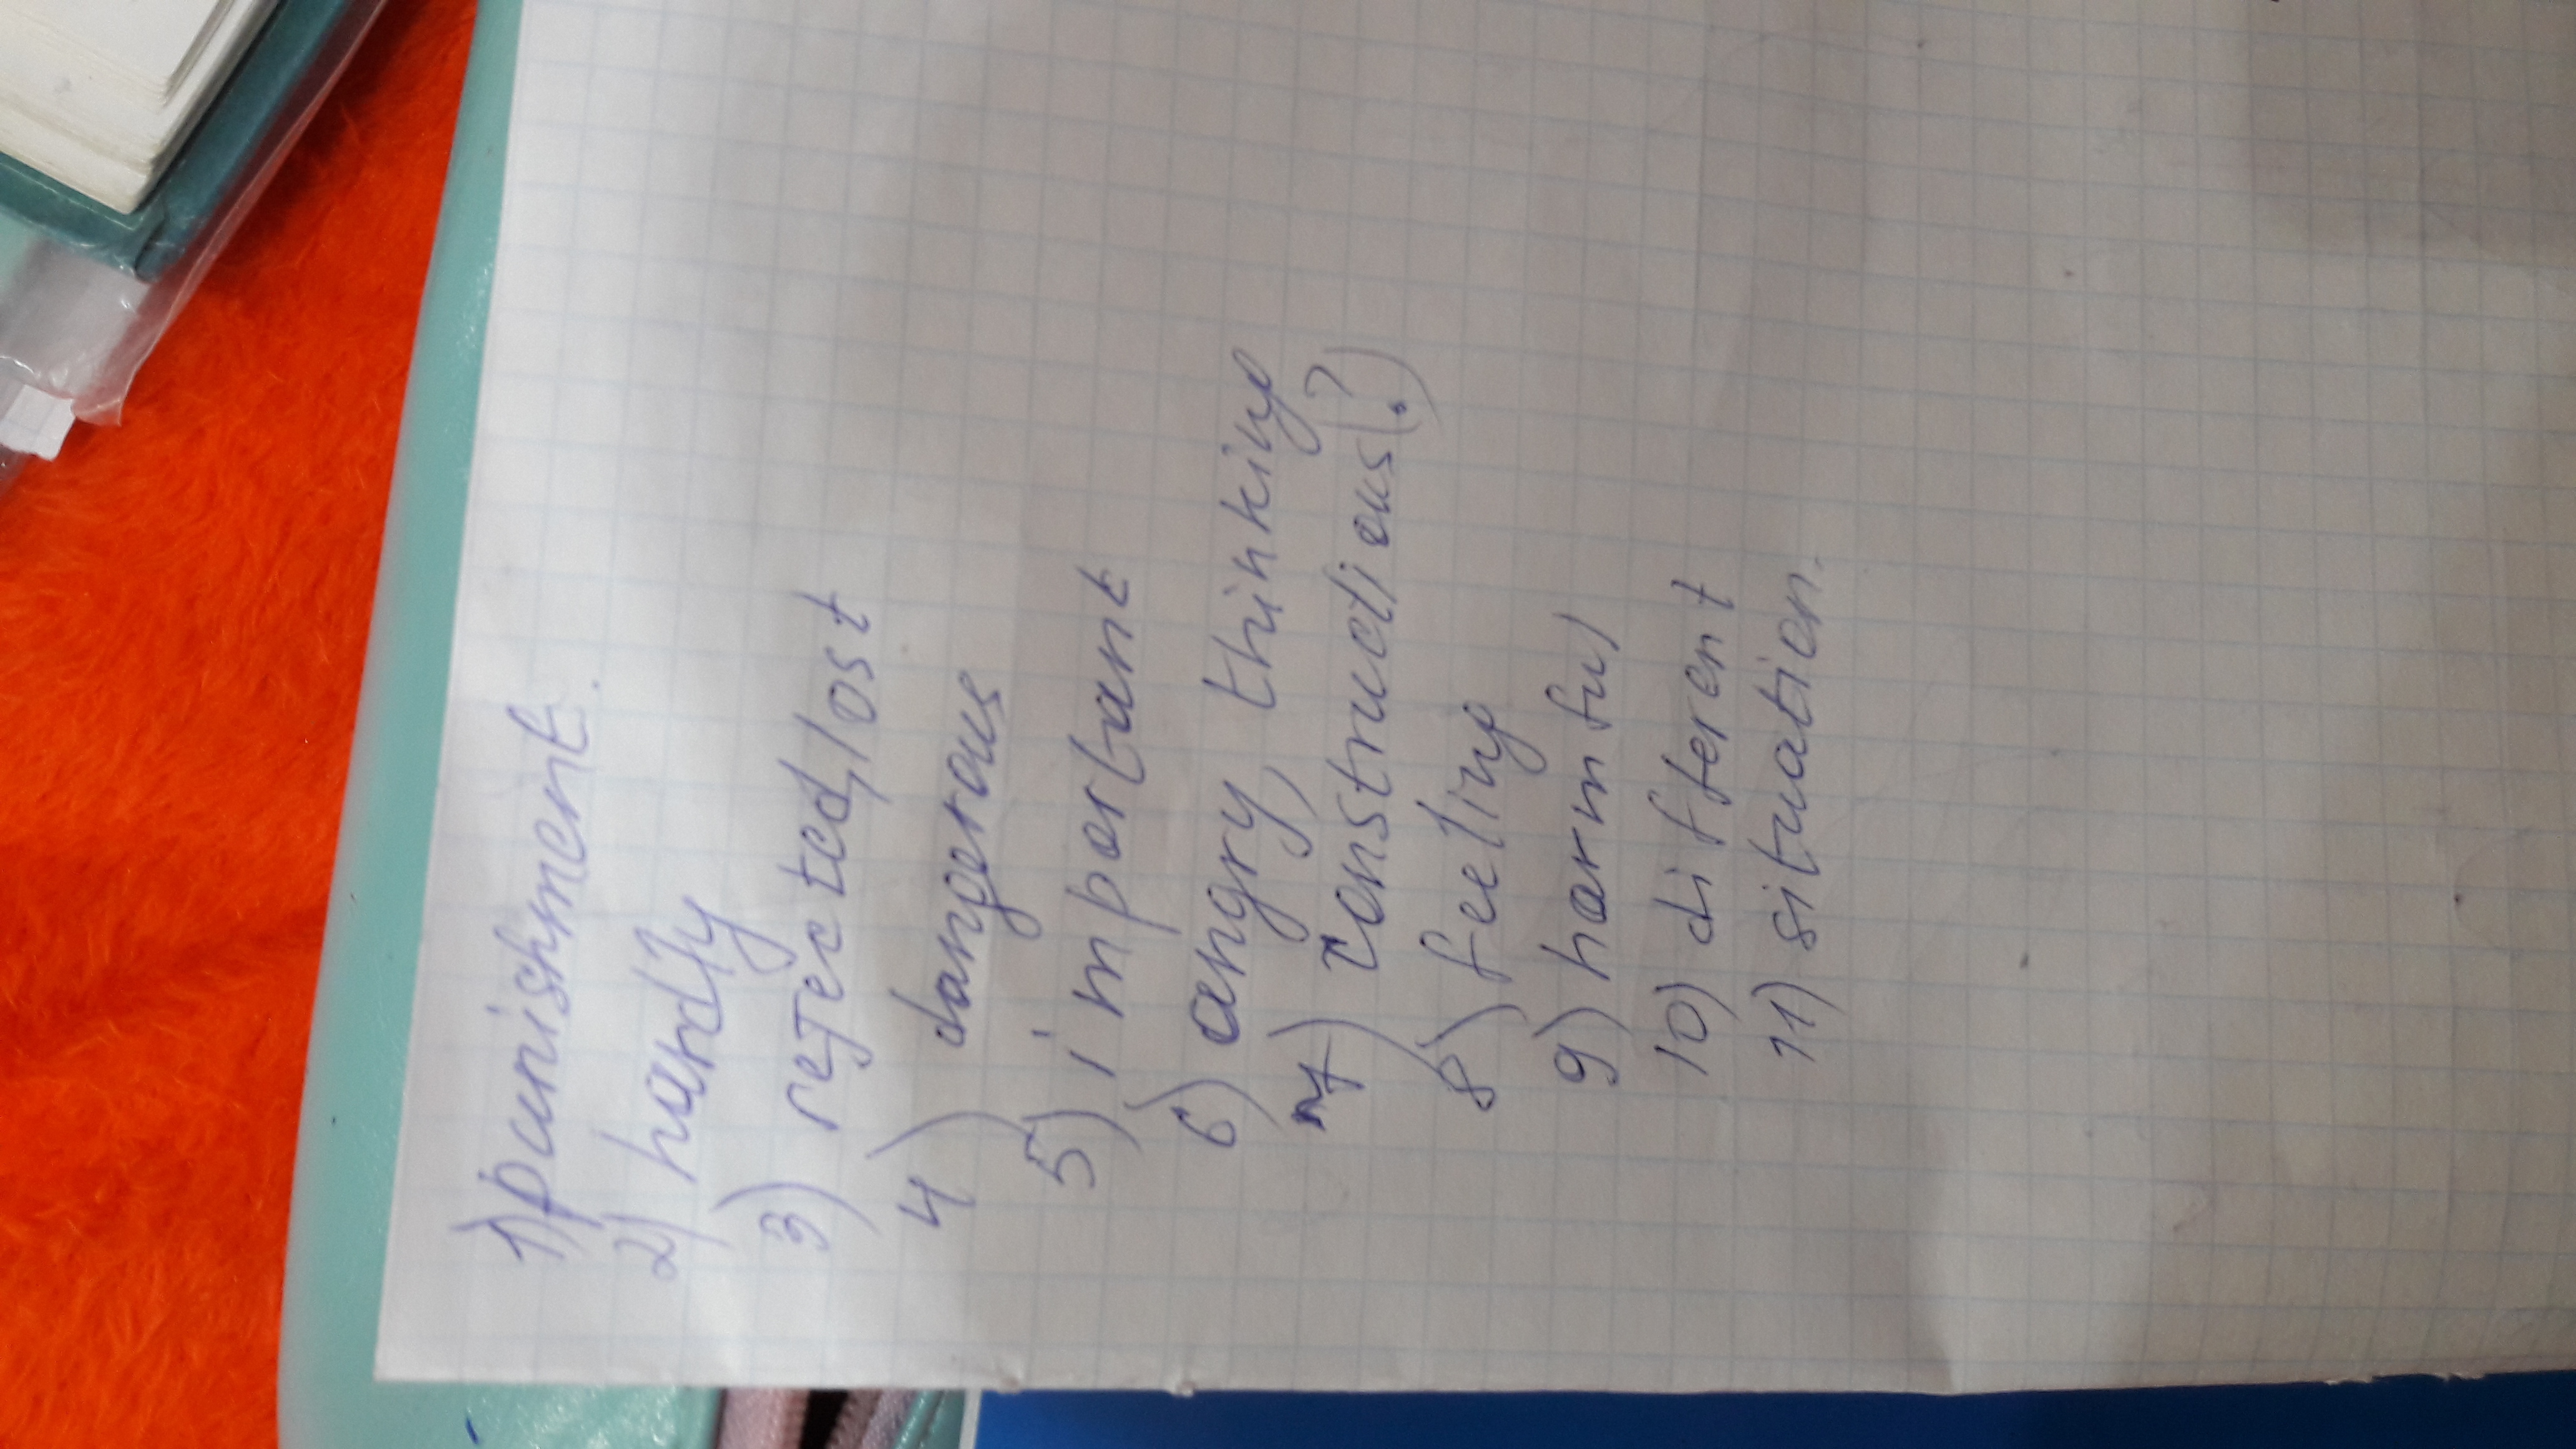 1) punishment.
2) hardly
3) rejected, lost
4) dangerous
5) important
6) angry, thinking
7) constructions(?)
8) feeling
9) harmful
10) different
11) situation.